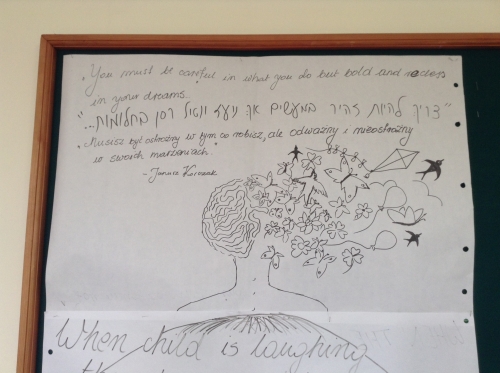 "You must be careful in what you do but bold and recless
in your dreams.
"צריך להיות זהיר במעשים אך נועז ונטול רסן בחלומות..."
"Musisz być ostrożny w tym co robisz, ale odważny i nieostrożny
w swoich marzeniach.
- Janusz Korczak
When child is laughing